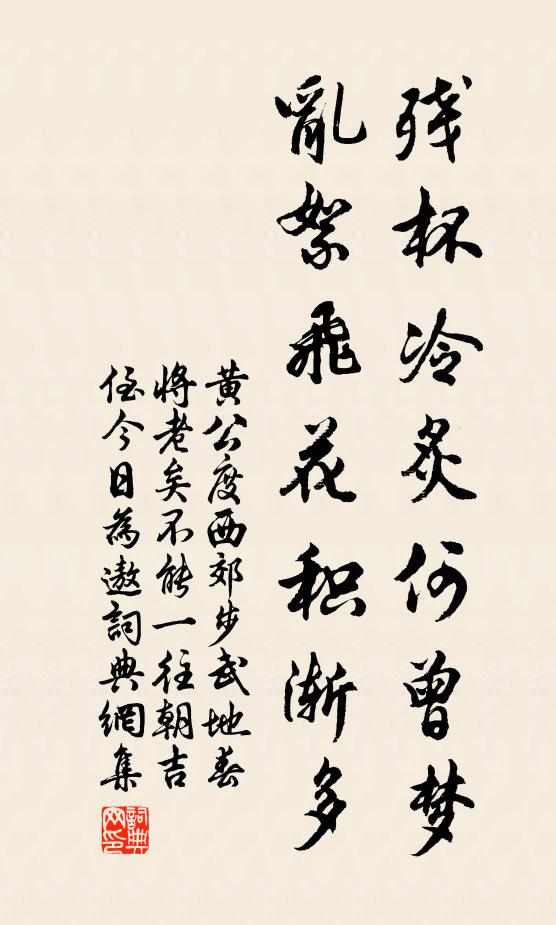 残杯冷炙何曾梦
亂絮飛花积渐多
黄公度西郊步武地春
将老矣不能一往朝吉
侄今日為遨詞典網集
詞典网印